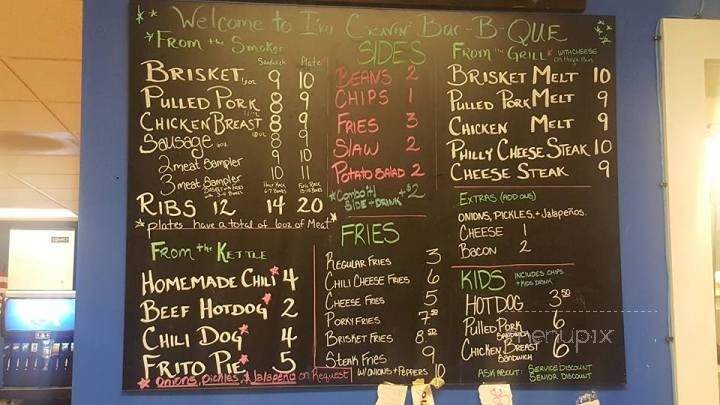 Welcome to I'm Cravin' Bar-B-QUE
From the Smoker
Sandwich Plate
BRISKET, 6oz 9 10
PULLED PORK 8 9
CHICKEN BREAST 8 9
Sausage 6oz 8 9
2 meat Sampler 9 10
3 meat Sampler 10 11
Half Rack Full Rack
6-7 Bones
RIBS 12 14 20
* plates have a total of 6oz of Meat
From the KETTLE
HOMEMADE CHILI* 4
BEEF HOTDOG* 2
CHILI DOG* 4
FRITO PIE* 5
* Onions, Pickles, & Jalapeño on Request
SIDES
BEANS 2
CHIPS 1
FRIES 3
SLAW 2
POTATO SALAD 2
*COMBO it!
SIDE + DRINK +$2
FRIES
REGULAR FRIES 3
CHILI CHEESE FRIES 6
CHEESE FRIES 5
PORKY FRIES 7.50
BRISKET FRIES 8.50
STEAK FRIES 9
W/ONIONS + PEPPERS 10
FROM the GRILL * WITH CHEESE
on Hoagie Bun
BRISKET MELT 10
PULLED PORK MELT 9
CHICKEN MELT 9
PHILLY CHEESE STEAK 10
CHEESE STEAK 9
EXTRAS (ADD ONS)
ONIONS, PICKLES, + Jalapeños
CHEESE 1
BACON 2
KIDS INCLUDES CHIPS
+ KIDS DRINK
HOTDOG 3.50
PULLED PORK 6
SANDWICH
CHICKEN BREAST 6
SANDWICH
ASK ABOUT: SERVICE DISCOUNT
SENIOR DISCOUNT
menupix